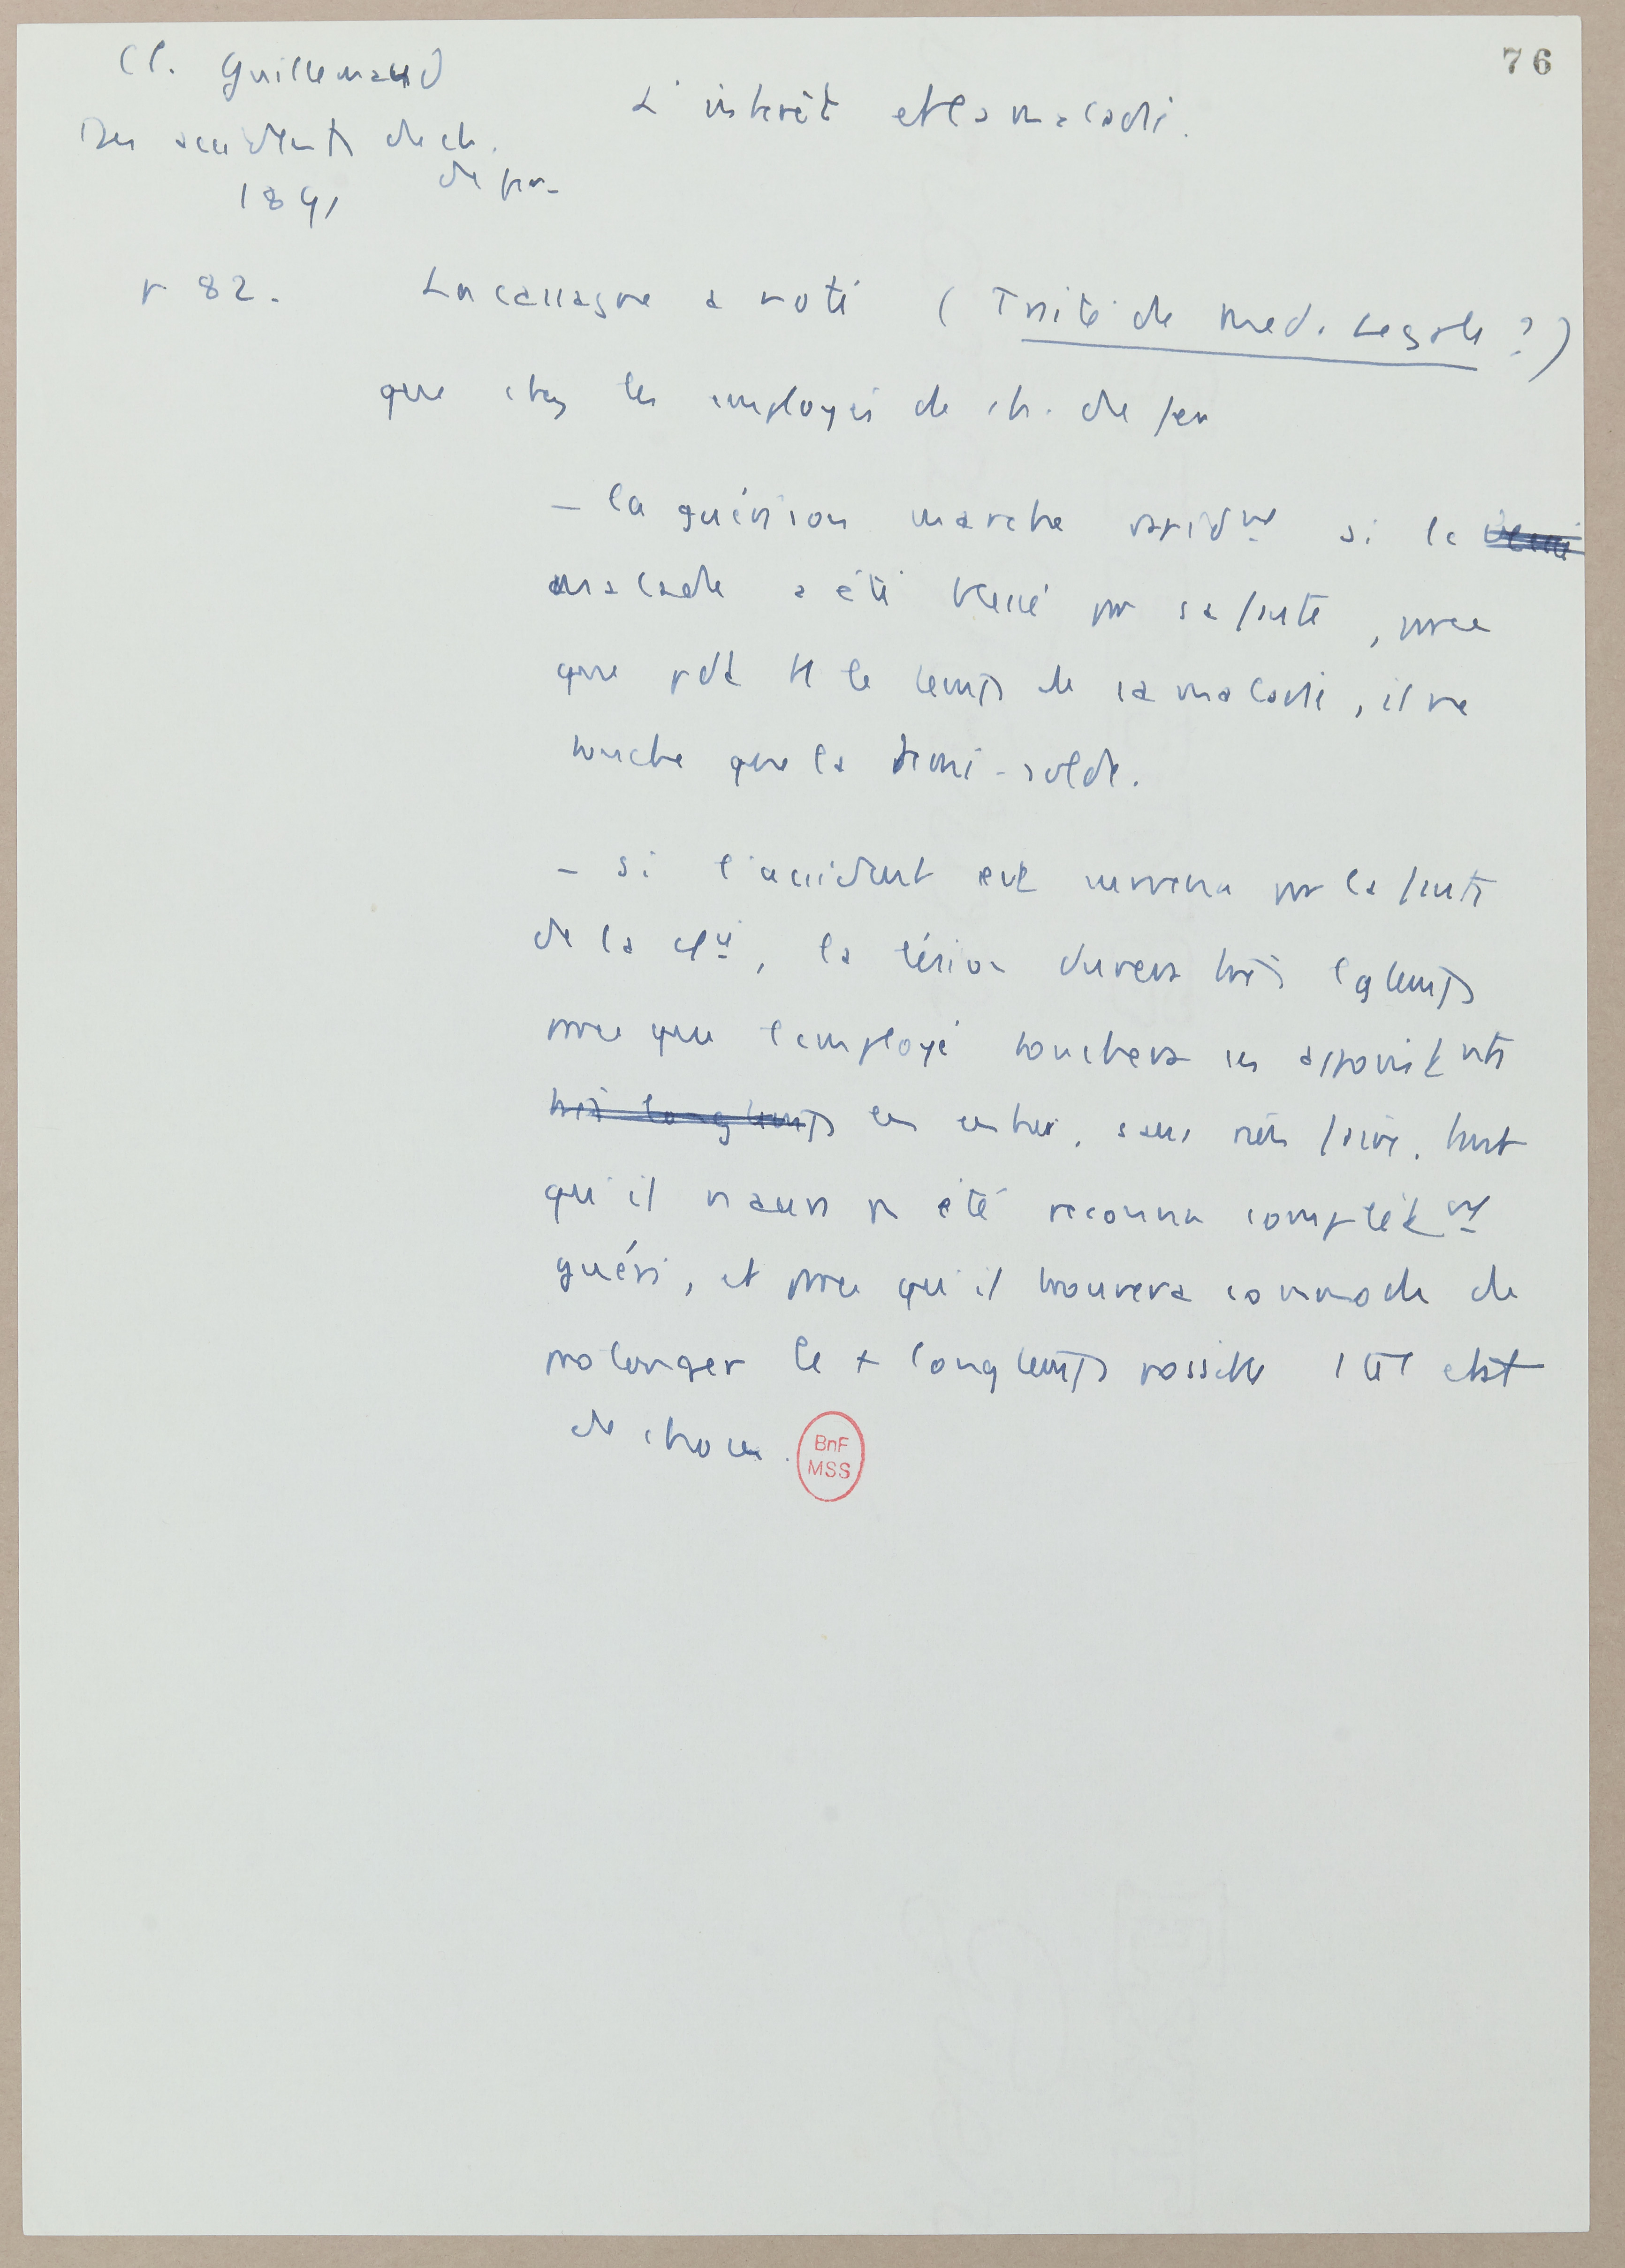 76
Cl. Guillemaud
Des accidents de ch.
de fer
1891
L'intérêt et la maladie.
p 82. Lacassagne a noté (Traité de Med. Legale ?)
que chez les employés de ch. de fer
– la guérison marche rapidmt si le
malade a été blessé par sa faute, parce
que pdt tt le temps de sa maladie, il ne
touche que la demi-solde.
– si l'accident est survenu par la faute
de la Cie, la lésion durera très lgtemps
parce que l'employé touchera ses appointmts
très longtemps en entier, sans rien faire, tant
qu'il n'aura pas été reconnu complètmt
guéri, et parce qu'il trouvera commode de
prolonger le + longtemps possible cet état
de choses.
BnF
MSS